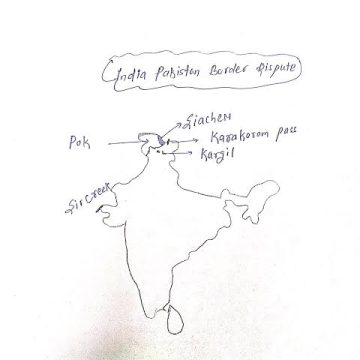 India Pakistan Border Dispute
Siachen
Pok
Karakoram pass
Kargil
Sir Creek